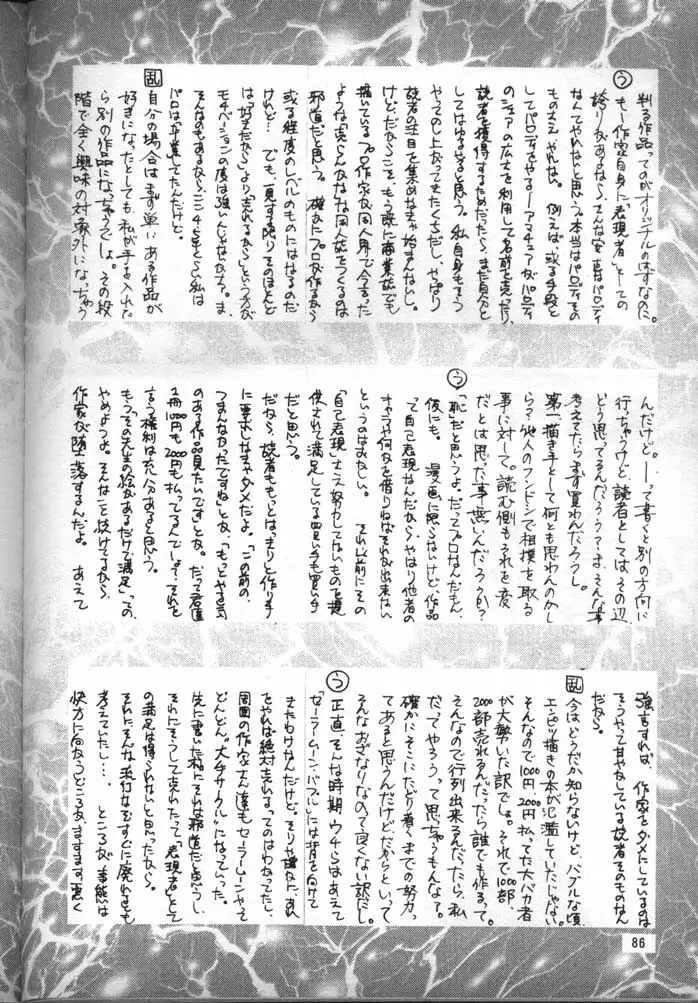 判る作品ってのがオリジナルのはずなのに。
う
もし作家自身に「表現者」としての
誇りがあるなら、そんな安直なパロディ
なんてやれないと思う。本当はパロディその
ものさえやれない。例えば、或る手段と
してパロディをやる―アマチュアがパロディ
のシェアの広さを利用して名前を売ったり、
読者を獲得するためだったら、まだ自分と
してはゆるせると思う。私自身もそう
やってのし上がってきたくちだし、やっぱり
読者の注目を集めなきゃ始まんないし。
けど、だからこそ、もう既に商業誌でも
描いているプロ作家が同人界で今さらった
ような実らんがなみな同人誌をつくるのは
邪道だと思う。確かにプロが作るから
或る程度のレベルのものにはなるのだ
けれど…でも、一見する限りそのほとんど
は「好きだから」より「売れるから」という方が
モチベーションの度は強いんじゃないか？ま、
そんなのもあるから、ここ3、4年くらい私は
パロは「卒業」してたんだけど。
乱
自分の場合はまず単にある作品が
好きになったとしても、私が手を入れた
ら別の作品になっちゃうしょ。その段
階で全く興味の対象外になっちゃう
んだけど。―って書くと別の方向に
行っちゃうけど読者としてはその辺
どう思ってるんだろう？う〜ん、そんな事
考えてたらまず買わんだろうし。
第一描き手として何とも思わんのかし
ら？他人のフンドシで相撲を取る
事に対して。読む側もそれを変
だとは思った事無いんだろうか？
う
「恥」だと思うよ。だってプロなんだもん、
仮にも。漫画に限らないけど、作品
って自己表現なんだから、やはり他者の
キャラや何かを借りねばそれが出来ない
というのはおかしい。それ以前にその
「自己表現」さえ努力してないものを提
供されて満足している買い手も買い手
だと思う。
だから、読者ももっとはっきりと作り手
に要求しなきゃダメだよ。「この前の、
つまんなかったですね」とか、「もっとやる気
のある作品見たいです」とか。だって君達
1冊1000円も2000円も払ってるんでしょ？それを
言う権利は充分あると思う。
もう「その先生の絵があるだけで満足」っての、
やめようよ。そんな事を続けてるから、
作家が堕落するんだよ。あえて
強言すれば、作家をダメにしているのは
そうやって甘やかしている読者そのものなん
だから。
乱
今はどうだか知らないけど、バブルな頃、
エンピツ描きの本が氾濫していたじゃない。
そんなので1000円、2000円払ってた大バカ者
が大勢いた訳でしょ。それで1000部、
2000部売れるんだったら誰でも作るって。
そんなので行列出来るんだったら、私
だってやろうって思っちゃうもんなァ。
確かにそこにたどり着くまでの努力っ
てあると思うんだけど、だからといって
そんなおざなりなのって良くない訳だし。
う
正直、そんな時期ウチらはあえて
「セーラームーン・バブル」には背を向けて
きたわけなんだけど、そりゃ誰だってあれ
をやれば絶対売れるってのはわかってたし、
周囲の作家さん達もセーラームーンやって
どんどん「大手サークル」になっていった。
先に書いた様にそれは邪道だと思うし、
それにそうして売れたって「表現者」として
の満足は得られないと思ったから。
それにそんな流行なぞすぐに廃れるとも
考えていたし…。ところが、事態は
快方に向かうどころか、ますます悪く
86